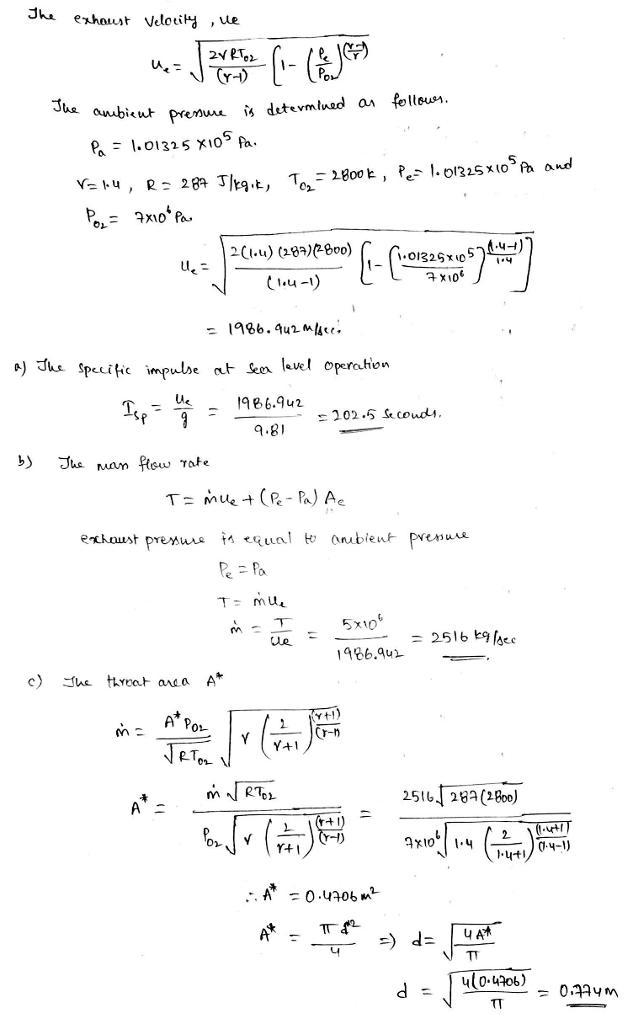 The exhaust velocity, ue
ue = √(2γRT02/(γ-1) [1 - (Pe/P02)^((γ-1)/γ)]
The ambient pressure is determined as follows.
Pa = 1.01325 x10^5 Pa.
γ=1.4, R = 287 J/kg.k, T02 = 2800k, Pe= 1.01325x10^5 Pa and
P02 = 7x10^6 Pa
ue = √(2(1.4)(287)(2800)/(1.4-1) [1 - (1.01325x10^5/7x10^6)^((1.4-1)/1.4)])
= 1986.942 m/sec.
a) The specific impulse at sea level operation
Isp = ue/g = 1986.942/9.81 = 202.5 seconds.
b) The mass flow rate
T = ṁue + (Pe - Pa) Ae
exhaust pressure is equal to ambient pressure
Pe = Pa
T = ṁue
ṁ = T/ue = 5x10^6/1986.942 = 2516 kg/sec
c) The throat area A*
ṁ = A* P02/√RT02 √(γ (2/γ+1)^((γ+1)/(γ-1)))
A* = ṁ√RT02/(P02√(γ (2/γ+1)^((γ+1)/(γ-1)))) = 2516√287(2800)/(7x10^6√(1.4 (2/1.4+1)^((1.4+1)/(1.4-1))))
∴ A* = 0.4706 m²
A* = πd²/4 => d = √(4A*/π)
d = √(4(0.4706)/π) = 0.774m